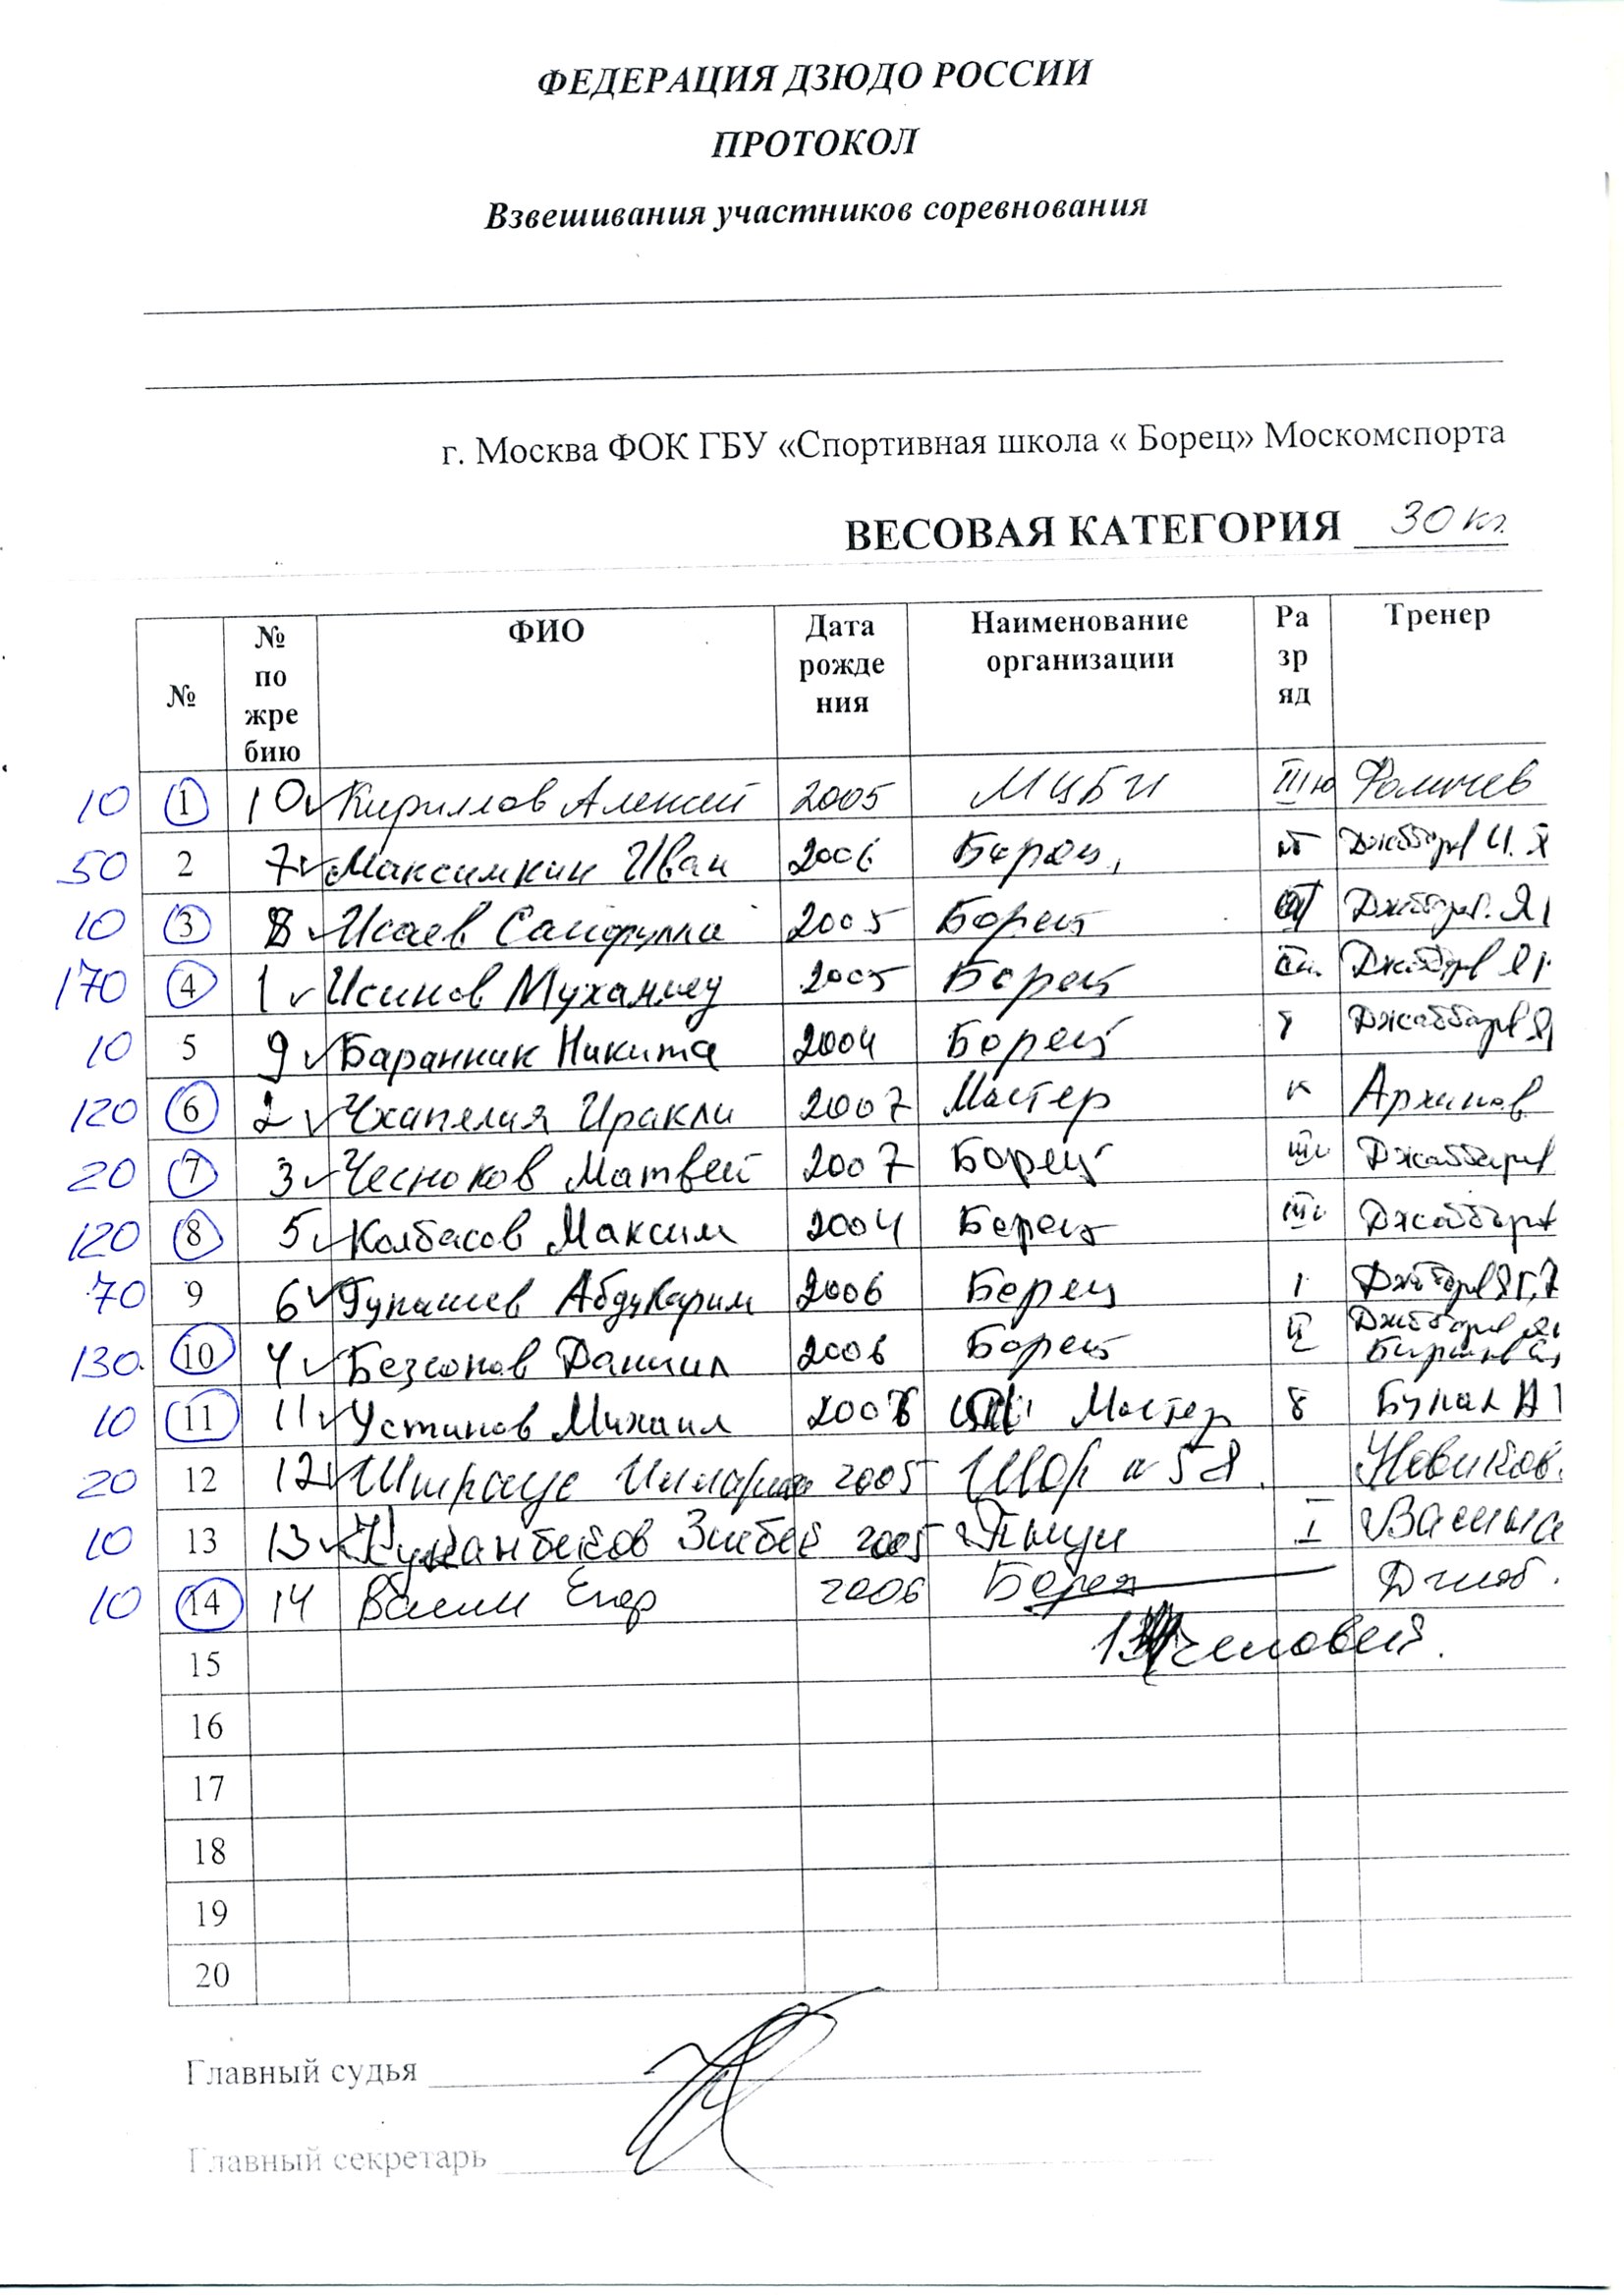 ФЕДЕРАЦИЯ ДЗЮДО РОССИИ
ПРОТОКОЛ
Взвешивания участников соревнования
г. Москва ФОК ГБУ «Спортивная школа « Борец» Москомспорта
ВЕСОВАЯ КАТЕГОРИЯ 30 кг.
№ № по жре бию ФИО Дата рожде ния Наименование организации Ра зр яд Тренер
10 1 10 Кириллов Алексей 2005 МЦБИ III ю Фомичев
50 2 7 Максимкин Иван 2006 Борец
10 3 8 Исаев Сайфулла 2005 Борец
170 4 1 Исинов Мухаммед 2005 Борец
10 5 9 Баранник Никита 2004 Борец Джаббаров
120 6 2 Чхапелия Иракли 2007 Мастер к Архипов
20 7 3 Чесноков Матвей 2007 Борец Джаббаров
120 8 5 Колбасов Максим 2004 Борец Джаббаров
70 9 6 Гунашев Абдукарим 2006 Борец 1
130. 10 4 Безсонов Даниил 2006 Борец II
10 11 11 Устинов Михаил Мастер
20 12 12 2005 58 Новиков.
10 13 13 2005 I
10 14 14 Егор 2006 Борец
человек.
15
16
17
18
19
20
Главный судья
Главный секретарь